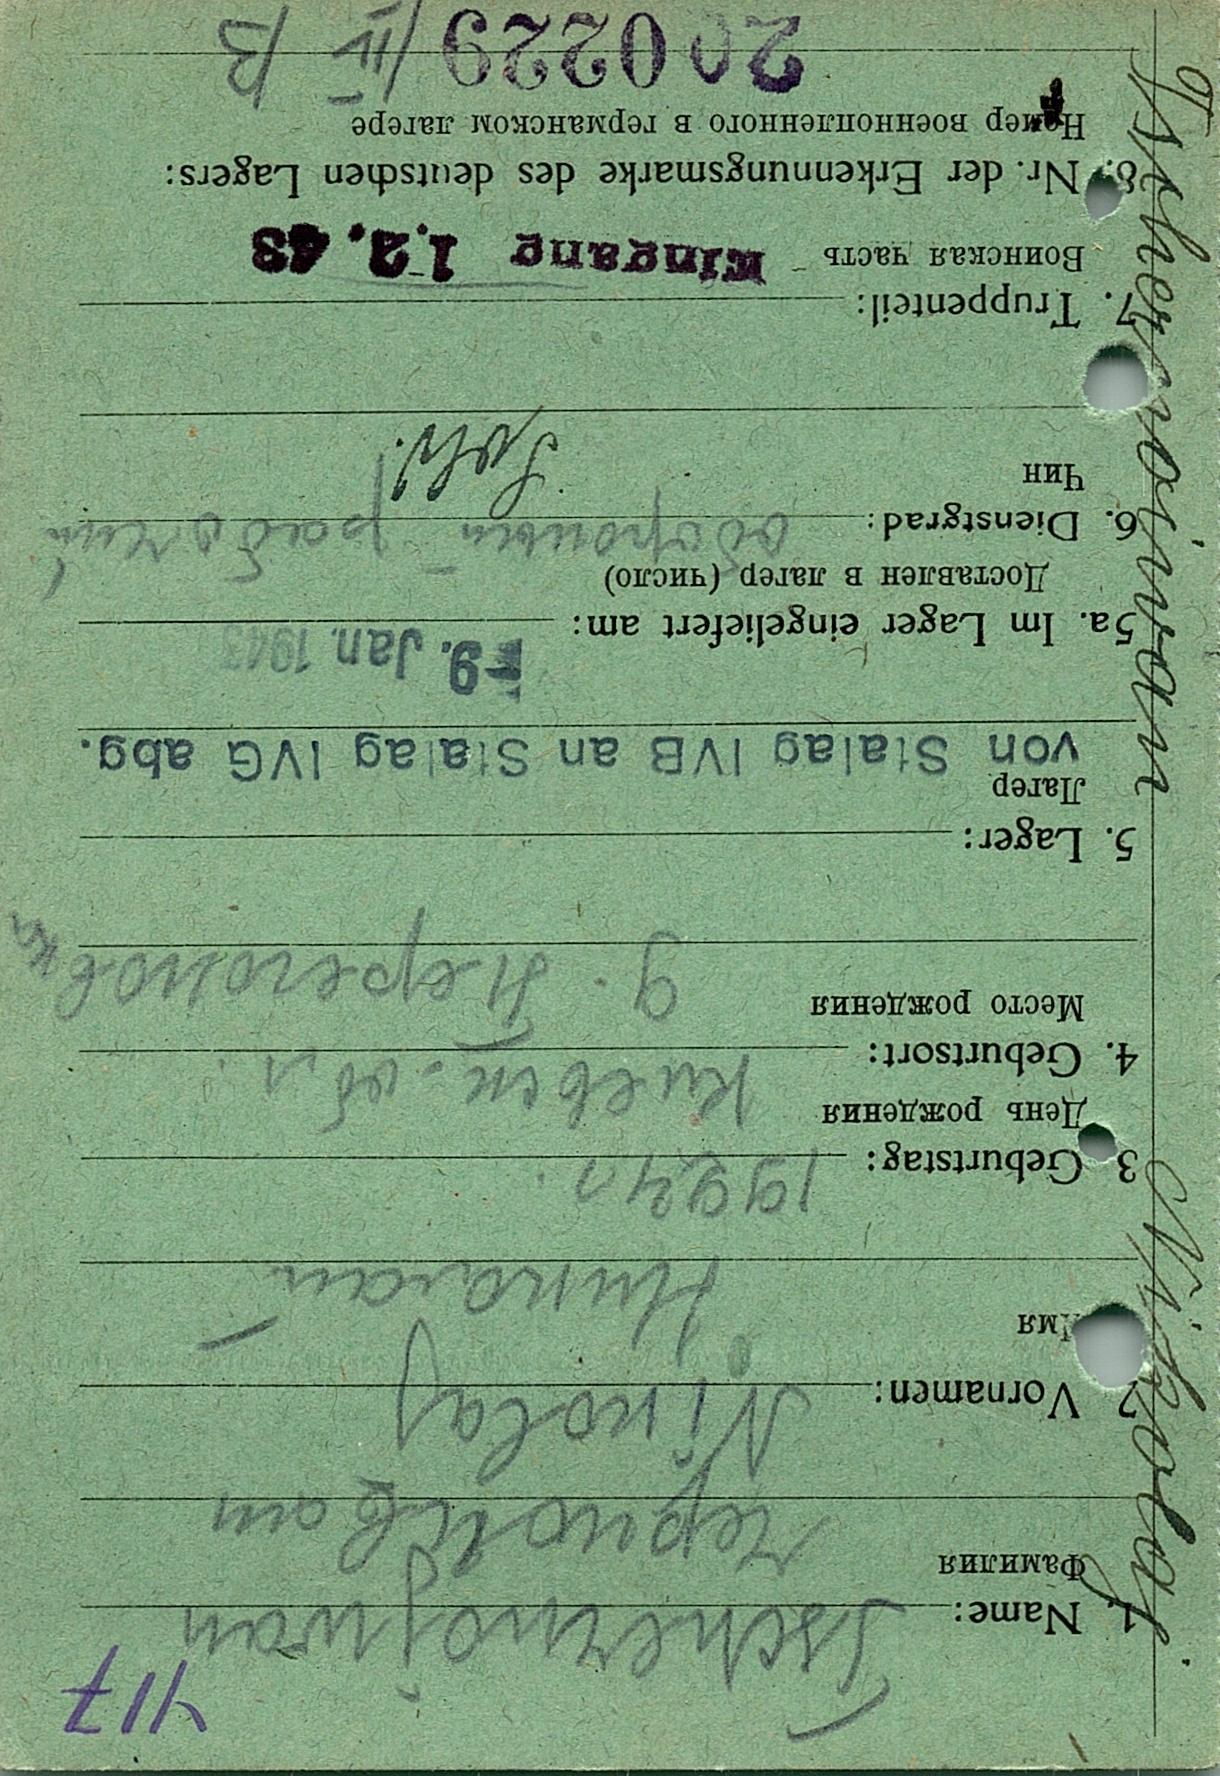 417
1. Name: Tschernojwan
Фамилия
Черноиван
2 Vornamen: Nikolaj
Имя
Николай
3 Geburtstag: 1924 г.
День рождения
4. Geburtsort: Киевск. обл.
Место рождения
д. Перегонов
5. Lager:
Лагер
von Stalag IVB an Stalag IVG abg.
5a. Im Lager eingeliefert am: 9. Jan. 1943
Доставлен в лагер (число)
6. Dienstgrad: рабочий
Чин Sold.
7. Truppenteil:
Воинская часть Eingang 1.2.43
8. Nr. der Erkennungsmarke des deutschen Lagers:
Номер военнопленного в германском лагере
200229/IV B
Tschernoiwan Nikolaj.